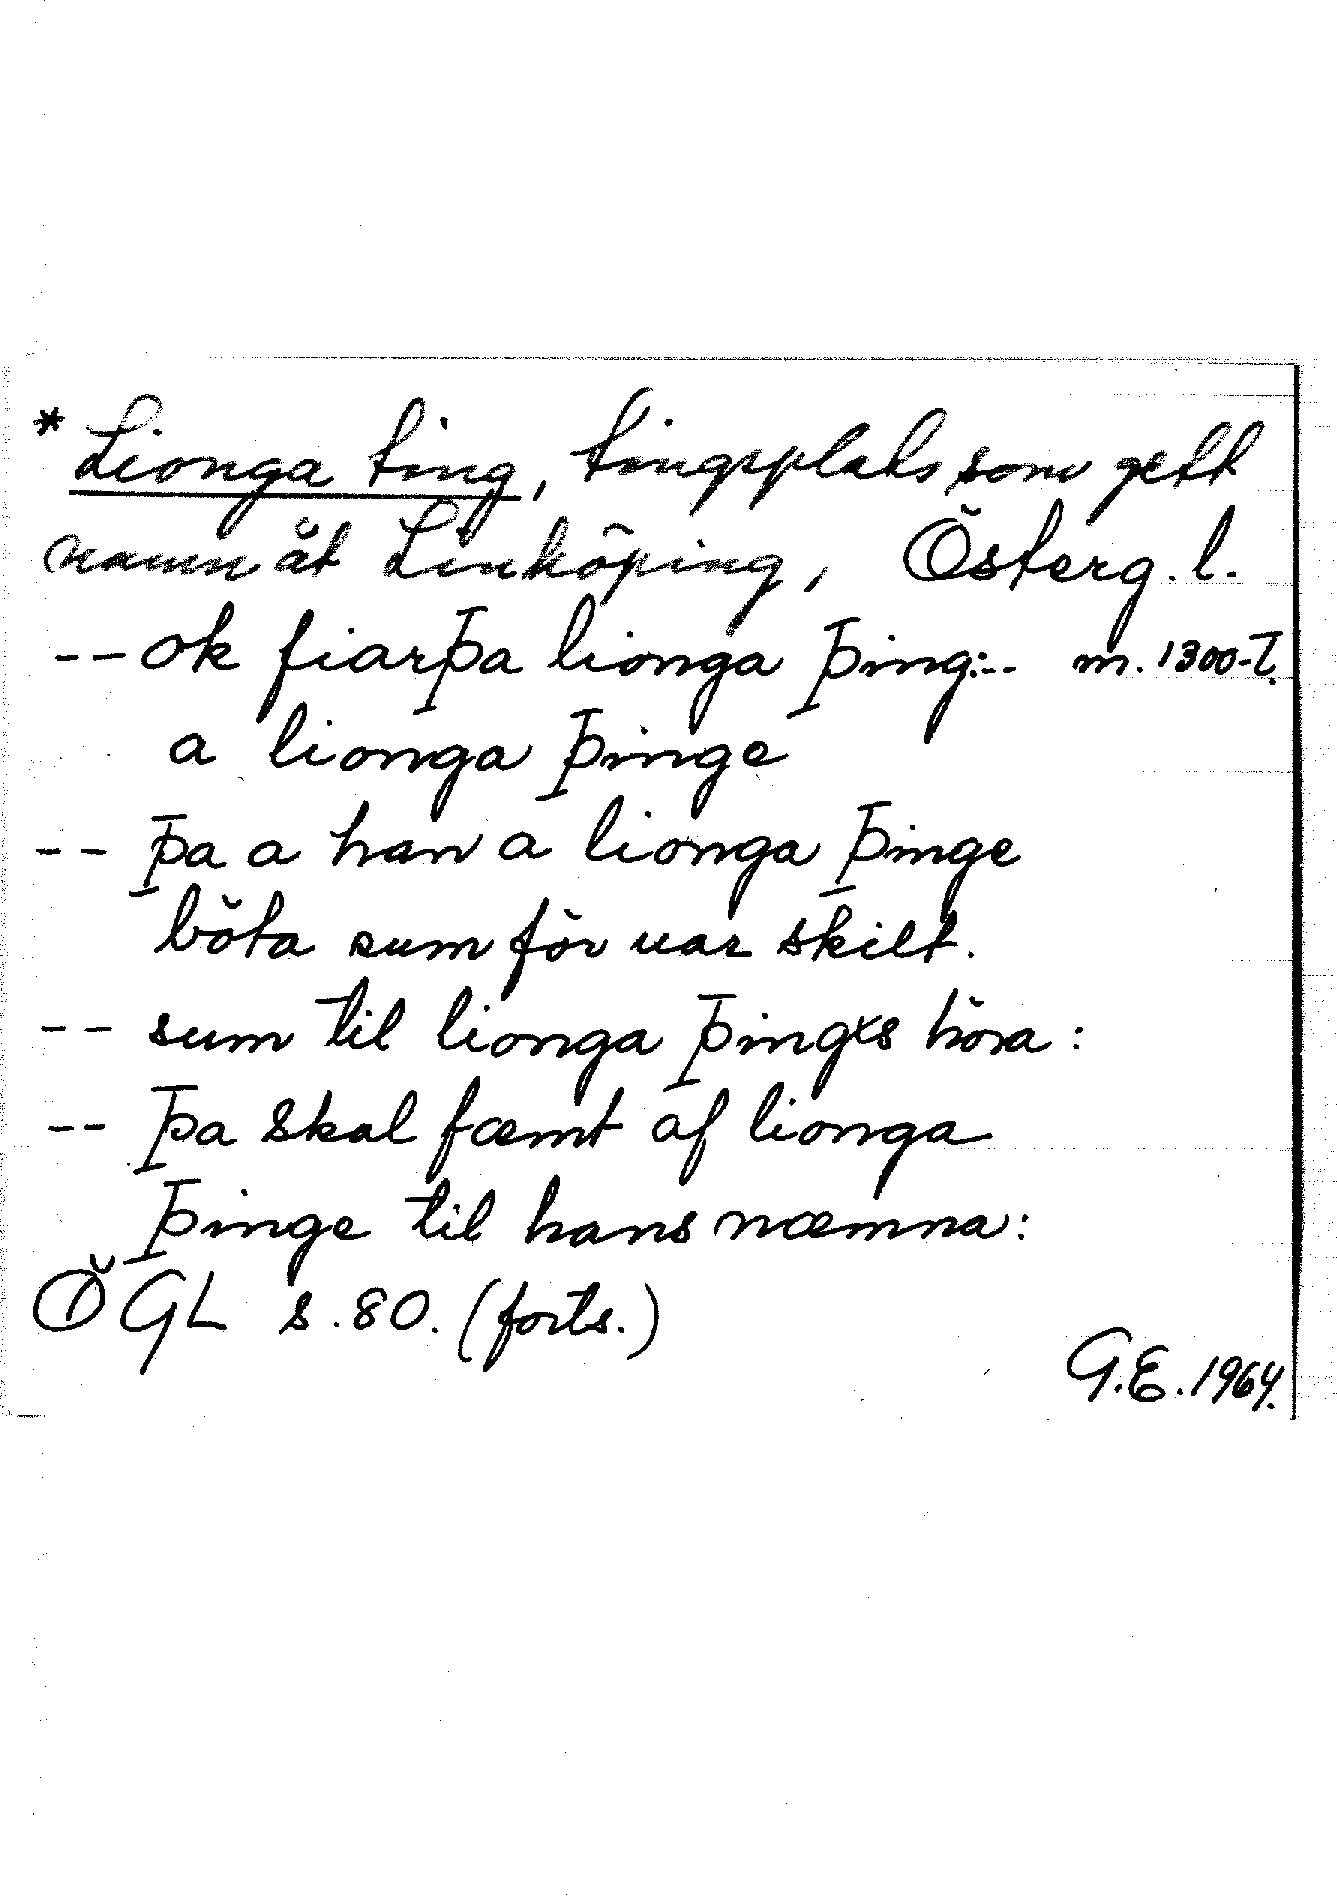 *Lionga ting, tingsplats som gett
namn åt Linköping, Österg.l.
-- ok fiarþa lionga þing:-- m. 1300-t.
a lionga þinge
-- þa a han a lionga þinge
böta sum för uar skilt.
-- sum til lionga þingxs höra:
-- þa skal fæmt af lionga
þinge til hans næmna:
ÖGL s.80. (forts.)
G.E. 1964.